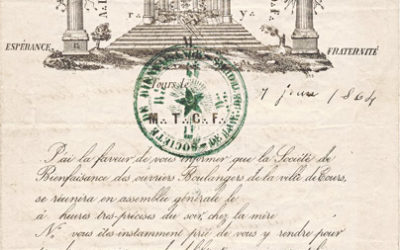 A∴L∴
r∴ y∴
D∴F∴
M.
ESPÉRANCE
FRATERNITÉ
Tours le 7 1864
M∴T∴C∴F∴
SOCIÉTÉ DE BIENFAISANCE
J'ai la faveur de vous informer que la Société de
Bienfaisance des ouvriers Boulangers de la ville de Tours,
se réunira en assemblée générale le
à heures très-précises du soir, chez la mère
N vous êtes instamment prié de vous y rendre pour